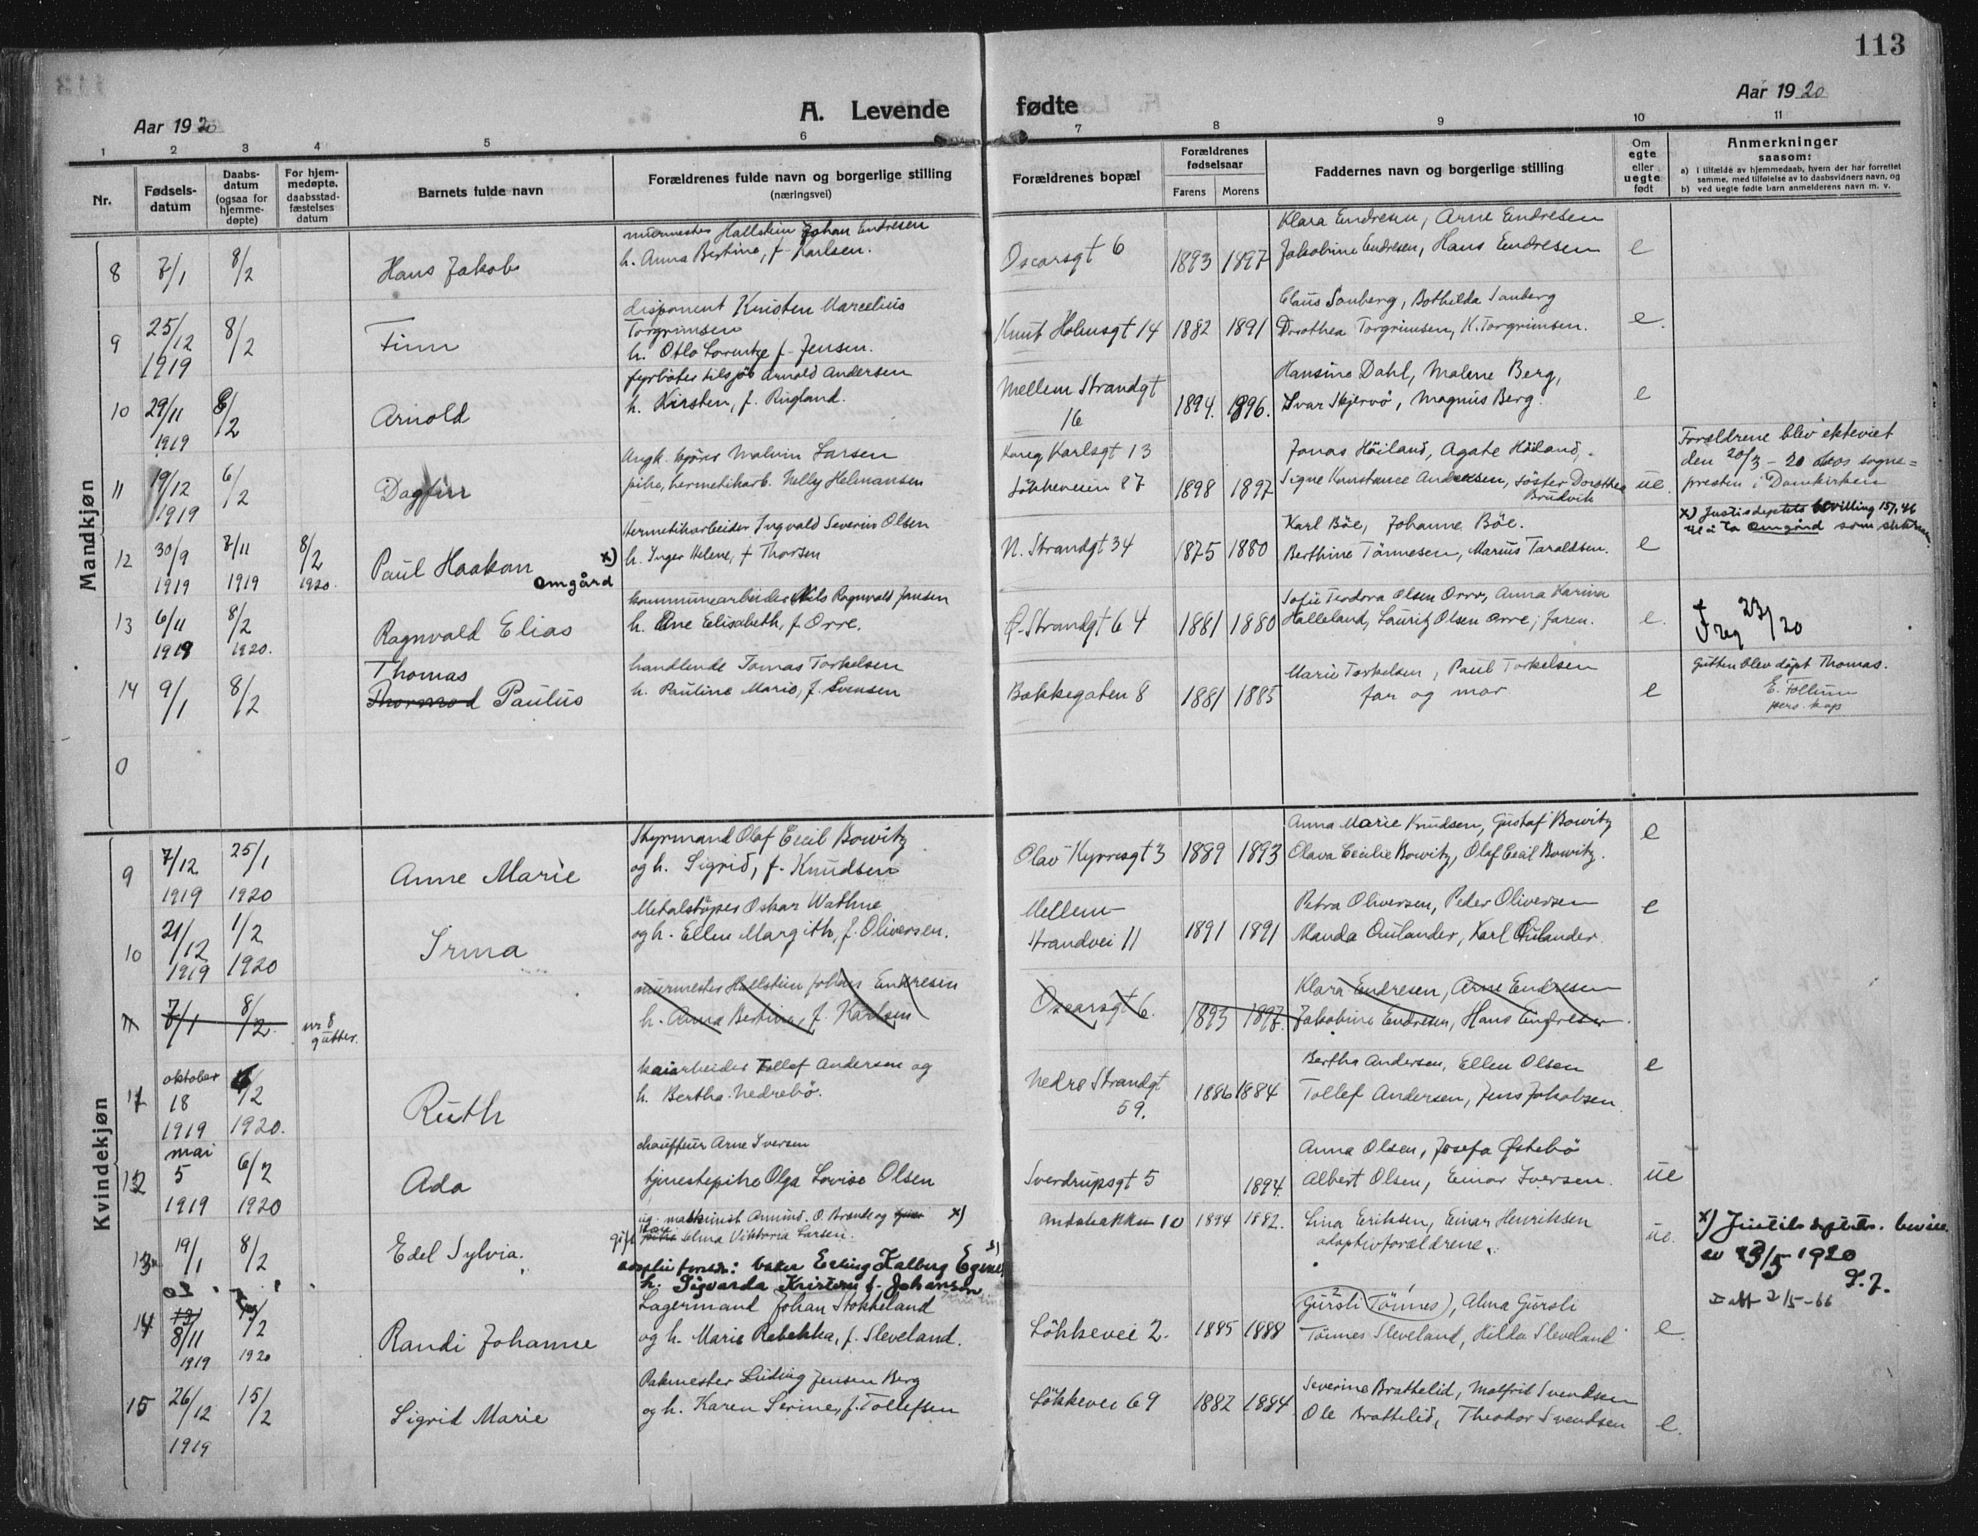 113
Aar 1920
A. Levende fødte
Aar 1920
1 2 3 4 5 6 7 8 9 10 11
Nr.
Fødsels-
datum
Daabs-
datum
(ogsaa for
hjemme-
døpte)
For hjem-
medøpte,
daabsstad-
fæstelses
datum
Barnets fulde navn
Forældrenes fulde navn og borgerlige stilling
(næringsvei)
Forældrenes bopæl
Forældrenes
fødselsaar
Farens Morens
Faddernes navn og borgerlige stilling
Om
egte
eller
uegte
født
Anmerkninger
saasom:
a) I tilfælde av hjemmedaab, hvem der har forrettet
samme, med tilføielse av to daabsvidners navn, og
b) ved uegte fødte barn anmelderens navn m. v.
Mandkjøn
8 7/1 8/2 Hans Jakob
murmester Hallstein Johan Endresen
h. Anna Bertine, f. Karlsen.
Oscarsgt 6 1893 1897
Klara Endresen, Arne Endresen
Jakobine Endresen, Hans Endresen e
9 25/12 1919 8/2 Finn
disponent Knisten Marcelius
Torgrimsen
h. Otto Lorentze f. Jensen.
Knut Holmsgt 14 1882 1891
Claus Sanberg, Bothilda Sanberg
Dorothea Torgrimsen, K. Torgrimsen. e.
10 29/11 1919 8/2 Arnold
fyrbøter tilsjøs Arnold Andersen
h. Kirsten, f. Rugland.
Mellem Strandgt
16 1894. 1896.
Hansine Dahl, Malene Berg,
Ivar Skjervø, Magnus Berg. e
11 19/12 1919 6/2 Dagfin
Malvin Larsen
pike, hermetikarb. Nelly Helmansen
Kong Karlsgt 13
Løkkeveien 87 1898 1897
Jonas Høiland, Agate Høiland,
Signe Konstance Andersen, søster Dorothea
Brudvik ue.
Forældrene blev ekteviet
den 20/3 - 20 hos sogne=
presten i Domkirken
12 30/9 1919 7/11 1919 8/2 1920. Paul Haakon x)
Omgård
Hermetikarbeider Ingvald Severin Olsen
h. Inger Helene, f. Thorsen
N. Strandgt 34 1875 1880
Karl Bøe, Johanne Bøe.
Berthine Tønnesen, Marius Taraldsen. e
x) Justisdeptets bevilling 15/7.46
til å ta Omgård som slektsn.
13 6/11 1919 8/2 1920. Ragnvald Elias
kommunearbeider Nils Ragnvald Jansen
h. Ane Elisabeth, f. Orre.
Ø. Strandgt 64 1881 1880
Sofie Teodora Olsen Orre, Anna Karina
Halleland, Lauritz Olsen Orre, Jæren. e.
† 23/20
Jreg
14 9/1 8/2 Thomas
Thormod Paulus
handlende Tomas Torkelsen
h. Pauline Marie, f. Svensen
Bakkegaten 8 1881 1885
Marie Torkelsen, Paul Torkelsen
far og mor e
Gutten blev døpt Thomas.
E. Follum
pers. kap
0
Kvindekjøn
9 7/12 1919 25/1 1920 Anne Marie
Styrmand Olaf Cecil Bowitz
og h. Sigrid, f. Knudsen
Olav Kyrresgt 3 1889 1893
Anna Marie Knudsen, Gustaf Bowitz
Olava Cecilie Bowitz, Olaf Cecil Bowitz. e
10 21/12 1919 1/2 1920 Irma
Metalstøper Oskar Wathne
og h. Ellen Margith, f. Oliversen.
Mellem-
strandvei 11 1891 1891
Petra Oliversen, Peder Oliversen
Manda Qulander, Karl Qulander. e
11 7/1 8/2. nr 8
gutter.
murmester Hallstein Johan Endresen
h. Anna Bertine, f. Karlsen
Oscarsgt 6. 1893 1897.
Klara Endresen, Arne Endresen
Jakobine Endresen, Hans Endresen.
11 oktober 18 1919 6/2 1920. Ruth
kaiarbeider Tollef Andersen og
h. Bertha Nedrebø.
Nedre Strandgt
59. 1886 1884
Bertha Andersen, Ellen Olsen
Tollef Andersen, Jens Jakobsen e
12 mai 5 1919 6/2 1920 Ada
chauffeur Arne Iversen
tjenestepike Olga Lovise Olsen
Sverdrupsgt 5 1894.
Anna Olsen, Josefa Østebø
Albert Olsen, Einar Iversen. ue
13 19/1 8/2 Edel Sylvia.
ug. maskinist Amund. O. Brande og x)
gift Selma Viktoria Larsen.
adoptivforeldr: baker Erling Falberg Egenes
h. Sigvarda Kristine f. Johansen
Andabakken 10 1894 1882.
Lina Eriksen, Einar Henriksen
adoptivforældrene. ue.
x) Justitsdeptets. bevill
av 23/5 1920
I att 2/5-66
14 8/11 1919 1920 Randi Johanne
Lagermand Johan Stokkeland
og h. Marie Rebekka, f. Sleveland.
Løkkevei 2. 1885 1888
Gursli (Tønnes), Alma Gursli
Tønnes Sleveland, Hilda Sleveland e.
15 26/12 1919 15/2 Sigrid Marie
Pakmester Ludvig Jensen Berg
og h. Karen Serine, f. Tollefsen
Løkkevei 69 1882 1884
Severine Brattelid, Malfrid Svendsen
Ole Brattelid, Theodor Svendsen e.